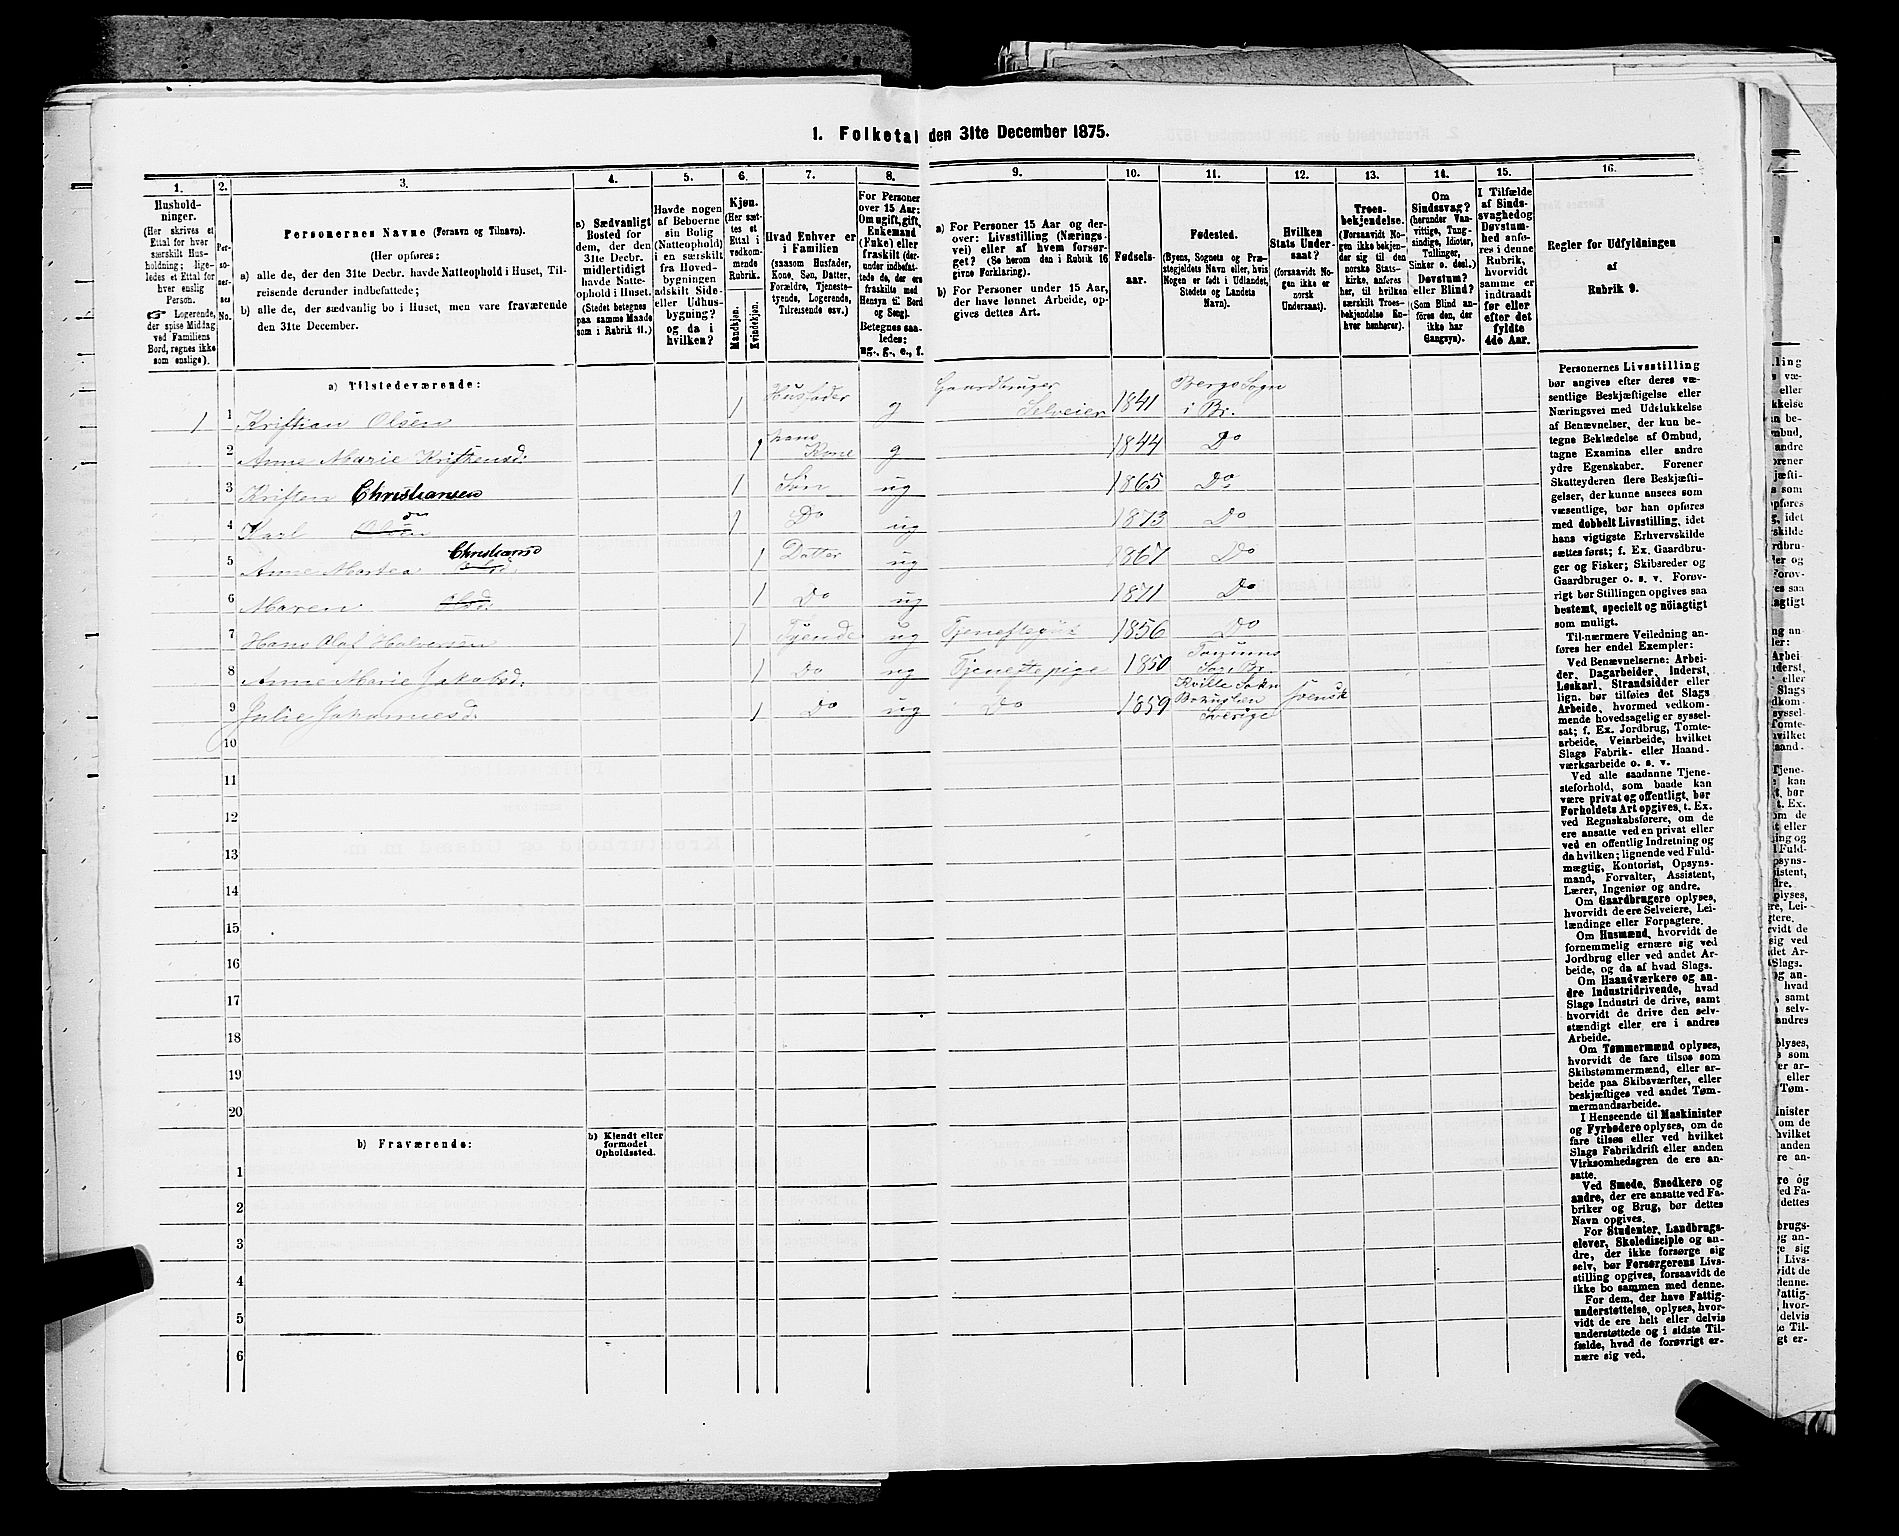 1. Folketal den 31te December 1875.
1. 2. 3. 4. 5. 6. 7. 8. 9. 10. 11. 12. 13. 14. 15. 16.
Hushold-
ninger.
(Her skrives et
Ettal for hver
særskilt Hus-
holdning; lige-
ledes et Ettal for
hver enslig
Person.
☞ Logerende,
der spise Middag
ved Familiens
Bord, regnes ikke
som enslige).
Per-
so-
ner-
nes
No.
Personernes Navne (Fornavn og Tilnavn).
(Her opføres:
a) alle de, der den 31te Decbr. havde Natteophold i Huset, Til-
reisende derunder indbefattede;
b) alle de, der sædvanlig bo i Huset, men vare fraværende
den 31te December.
a) Sædvanligt
Bosted for
dem, der den
31te Decbr.
midlertidigt
havde Natte-
ophold i Huset.
(Stedet betegnes
paa samme Maade
som i Rubrik 11.)
Havde nogen
af Beboerne
sin Bolig
(Natteophold)
i en særskilt
fra Hoved-
bygningen
adskilt Side-
eller Udhus-
bygning?
og da i
hvilken?
Kjøn.
(Her sæt-
tes et
Ettal i
vedkom-
mende
Rubrik.
Mandkjøn.
Kvindekjøn.
Hvad Enhver er
i Familien
(saasom Husfader,
Kone, Søn, Datter,
Forældre, Tjeneste-
tyende, Logerende,
Tilreisende osv.)
For Personer
over 15 Aar:
Om ugift, gift,
Enkemand
(Enke) eller
fraskilt (der-
under indbefat-
tede de, der ere
fraskilte med
Hensyn til Bord
og Seng).
Betegnes saa-
ledes:
ug., g., e., f.
a) For Personer 15 Aar og der-
over: Livsstilling (Nærings-
vei) eller af hvem forsør-
get? (Se herom den i Rubrik 16
givne Forklaring).
b) For Personer under 15 Aar,
der have lønnet Arbeide, op-
gives dettes Art.
Fødsels-
aar.
Fødested.
(Byens, Sognets og Præ-
stegjeldets Navn eller, hvis
Nogen er født i Udlandet,
Stedets og Landets
Navn).
Hvilken
Stats Under-
saat?
(forsaavidt No-
gen ikke er
norsk
Undersaat).
Troes-
bekjendelse.
(Forsaavidt No-
gen ikke bekjen-
der sig til den
norske Stats-
kirke, anføres
her, til hvilken
særskilt Troes-
bekjendelse En-
hver henhører).
Om
Sindssvag?
(herunder Van-
vittige, Tung-
sindige, Idioter,
Tullinger,
Sinker o. desl.)
Døvstum?
eller Blind?
(Som Blind an-
føres den, der
ikke har
Gangsyn).
I Tilfælde
af Sinds-
svaghed og
Døvstum-
hed anfø-
res i denne
Rubrik,
hvorvidt
samme er
indtraadt
før eller
efter det
fyldte
4de Aar.
Regler for Udfyldningen
af
Rubrik 9.
a) Tilstedeværende:
1 1 Kristian Olsen 1 Husfader g Gaardbruger Selveier 1841 Bergs Sogn i Br.
2 Anne Marie Kristensd. 1 hans Kone g 1844 Do
3 Kristen Christiansen 1 Søn ug 1865 Do
4 Karl Olsen do 1 Do ug 1873 Do
5 Anne Martea Olsd. Christiansd 1 Datter ug 1867 Do
6 Maren Olsd. d 1 Do ug 1871 Do
7 Hans Olaf Halvorsen 1 Tyende ug Tjenestegut 1856 Do
8 Anne Marie Jakobsd. 1 Do ug Tjenestepige 1850
9 Julie Johannesd. 1 Do ug Do 1859 Kville Sokn Bohuslen Sverige Svensk
10
11
12
13
14
15
16
17
18
19
20
b) Fraværende:
b) Kjendt eller
formodet
Opholdssted.
1
2
3
4
5
6
Personernes Livsstilling
bør angives efter deres væ-
sentlige Beskjæftigelse eller
Næringsvei med Udelukkelse
af Benævnelser, der kun be-
tegne Beklædelse af Ombud,
tagne Examina eller andre
ydre Egenskaber. Forener
Skatteyderen flere Beskjæfti-
gelser, der kunne ansees som
væsentlige, bør han opføres
med dobbelt Livsstilling, idet
hans vigtigste Erhvervskilde
sættes først; f. Ex. Gaardbru-
ger og Fisker; Skibsreder og
Gaardbruger o. s. v. Forøv-
rigt bør Stillingen opgives saa
bestemt, specielt og nöiagtigt
som muligt.
Til nærmere Veiledning an-
føres her endel Exempler:
Ved Benævnelserne: Arbei-
der, Dagarbeider, Inderst,
Løskarl, Strandsidder eller
lign. bør tilføies det Slags
Arbeide, hvormed vedkom-
mende hovedsagelig er syssel-
sat; f. Ex. Jordbrug, Tomte-
arbeide, Veiarbeide, hvilket
Slags Fabrik- eller Haand-
værksarbeide o. s. v.
Ved alle saadanne Tjene-
steforhold, som baade kan
være privat og offentligt, bør
Forholdets Art opgives, t. Ex.
ved Regnskabsførere, om de
ere ansatte ved en privat eller
ved en offentlig Indretning og
da hvilken; lignende ved Fuld-
mægtig, Kontorist, Opsyns-
mand, Forvalter, Assistent,
Lærer, Ingeniør og andre.
Om Gaardbrugere oplyses,
hvorvidt de ere Selveiere, Lei-
lændinge eller Forpagtere.
Om Husmænd, hvorvidt de
fornemmelig ernære sig ved
Jordbrug eller ved andet Ar-
beide, og da af hvad Slags.
Om Haandværkere og an-
dre Industridrivende, hvad
Slags Industri de drive, samt
hvorvidt de drive den selv-
stændigt eller ere i andres
Arbeide.
Om Tømmermænd oplyses,
hvorvidt de fare tilsøs som
Skibstømmermænd, eller ar-
beide paa Skibsværfter, eller
beskjæftiges ved andet Tøm-
mermandsarbeide.
I Henseende til Maskinister
og Fyrbødere oplyses, om de
fare tilsøs eller ved hvilket
Slags Fabrikdrift eller anden
Virksomhedsgren de ere an-
satte.
Ved Smede, Snedkere og
andre, der ere ansatte ved Fa-
briker og Brug, bør dettes
Navn opgives.
For Studenter, Landbrugs-
elever, Skoledisciple og an-
dre, der ikke forsørge sig
selv, bør Forsørgerens Livs-
stilling opgives, forsaavidt de
ikke bo sammen med denne.
For dem, der have Fattig-
understøttelse, oplyses, hvor-
vidt de ere helt eller delvis
understøttede og i sidste Til-
fælde, hvad de forøvrigt er-
nære sig ved.